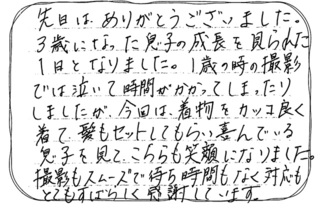 先日は、ありがとうございました。
3歳になった息子の成長を見られた
1日となりました。1歳の時の撮影
では泣いて時間がかかってしまったり
しましたが、今回は、着物をカッコ良く
着て、髪もセットしてもらい喜んでいる
息子を見て、こちらも笑顔になりました。
撮影もスムーズで待ち時間もなく対応も
とてもすばらしく感謝しています。